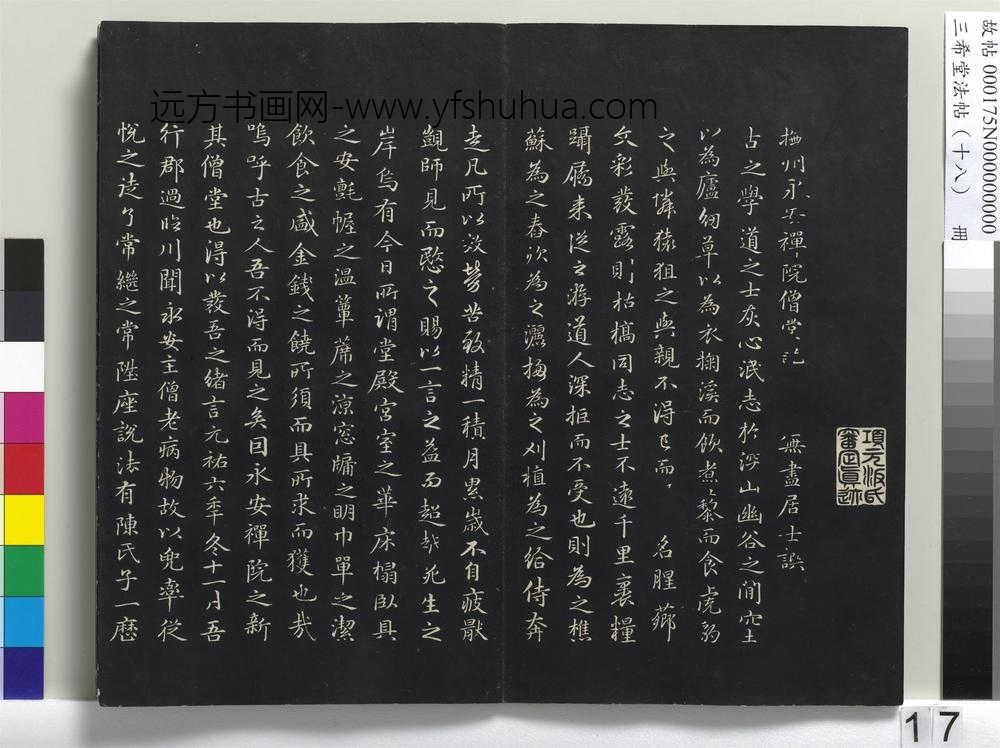 撫州永安禪院僧堂記 無盡居士譔
古之學道之士灰心泯志於深山幽谷之間穴土
以為廬紉草以為衣掬溪而飲煮藜而食虎豹
之與隣猿狙之與親不得已而 名腥薌
文彩發露則枯槁同志之士不遠千里裹糧
躡屩來從之游道人深拒而不受也則為之樵
蘇為之舂炊為之灑掃為之刈植為之給侍奔
走凡所以效勞苦致精一積月累歲不自疲厭
覬師見而愍之賜以一言之益而超越死生之
岸烏有今日所謂堂殿宮室之華床榻臥具
之安氈幄之溫簟蓆之涼窓牖之明巾單之潔
飲食之盛金錢之饒所須而具所求而獲也哉
嗚呼古之人吾不得而見之矣因永安禪院之新
其僧堂也得以發吾之緒言元祐六年冬十一月吾
行郡過臨川聞永安主僧老病物故以兜率從
悅之徒了常繼之常陞座說法有陳氏子一歷
項元汴氏審定真跡
远方书画网-www.yfshuhua.com
故帖 000175N000000000
三希堂法帖（十八） 冊
17